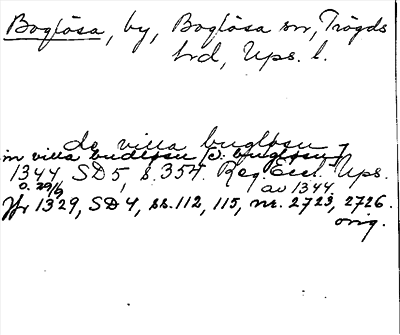 Boglösa, by, Boglösa sn, Trögds
hd, Ups. l.
de villa bugløsu
in villa budløsu (ɔ: bugløsu)
1344 SD 5, s. 354. Reg. Eccl. Ups.
o. 29/6 av 1344.
Jfr 1329, SD 4, ss. 112, 115, nr. 2723, 2726.
orig.